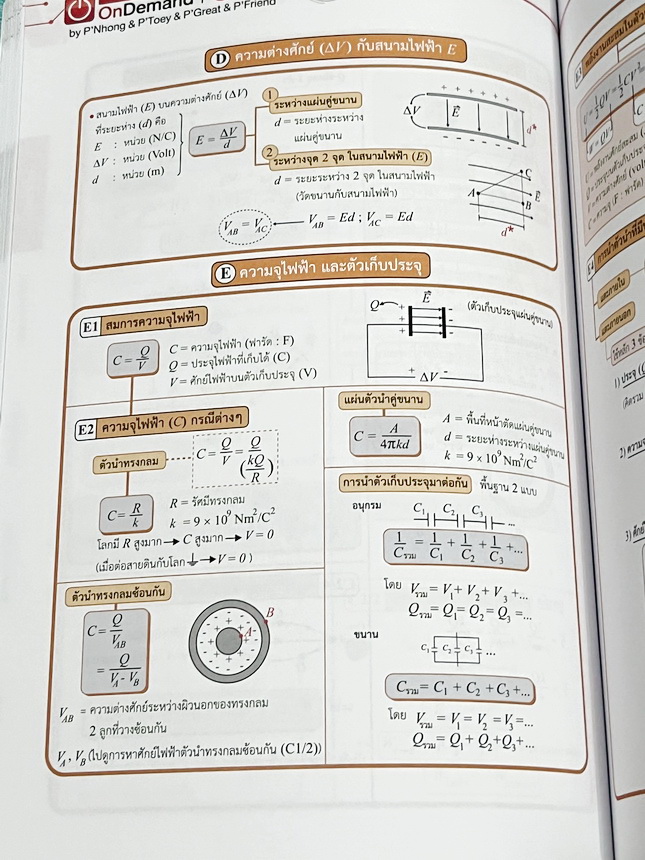 OnDemand
by P'Nhong & P'Toey & P'Great & P'Friend
D ความต่างศักย์ (ΔV) กับสนามไฟฟ้า E
• สนามไฟฟ้า (E) บนความต่างศักย์ (ΔV)
ที่ระยะห่าง (d) คือ
E : หน่วย (N/C)
ΔV : หน่วย (Volt)
d : หน่วย (m)
E = ΔV/d
1 ระหว่างแผ่นคู่ขนาน
d = ระยะห่างระหว่าง
แผ่นคู่ขนาน
2 ระหว่างจุด 2 จุด ในสนามไฟฟ้า (E)
d = ระยะระหว่าง 2 จุด ในสนามไฟฟ้า
(วัดขนานกับสนามไฟฟ้า)
V_AB = V_AC
V_AB = Ed ; V_AC = Ed
+ + + + + +
ΔV E d*
- - - - - -
C
A E
B
d*
E ความจุไฟฟ้า และตัวเก็บประจุ
E1 สมการความจุไฟฟ้า
C = Q/V
C = ความจุไฟฟ้า (ฟารัด : F)
Q = ประจุไฟฟ้าที่เก็บได้ (C)
V = ศักย์ไฟฟ้าบนตัวเก็บประจุ (V)
Q E (ตัวเก็บประจุแผ่นคู่ขนาน)
+ -
+ -
+ -
+ ΔV -
E2 ความจุไฟฟ้า (C) กรณีต่างๆ
ตัวนำทรงกลม
C = Q/V = Q/(kQ/R)
C = R/k
R = รัศมีทรงกลม
k = 9 × 10⁹ Nm²/C²
โลกมี R สูงมาก → C สูงมาก → V = 0
(เมื่อต่อสายดินกับโลก → V = 0 )
ตัวนำทรงกลมซ้อนกัน
C = Q/V_AB
= Q/(V_A - V_B)
A
B
V_AB = ความต่างศักย์ระหว่างผิวนอกของทรงกลม
2 ลูกที่วางซ้อนกัน
V_A , V_B (ไปดูการหาศักย์ไฟฟ้าตัวนำทรงกลมซ้อนกัน (C1/2))
แผ่นตัวนำคู่ขนาน
C = A/4πkd
A = พื้นที่หน้าตัดแผ่นคู่ขนาน
d = ระยะห่างระหว่างแผ่นคู่ขนาน
k = 9 × 10⁹ Nm²/C²
การนำตัวเก็บประจุมาต่อกัน พื้นฐาน 2 แบบ
อนุกรม
C₁ C₂ C₃ ...
1/C_รวม = 1/C₁ + 1/C₂ + 1/C₃ +...
โดย V_รวม = V₁ + V₂ + V₃ +...
Q_รวม = Q₁ = Q₂ = Q₃ =...
ขนาน
C₁ C₂ C₃ ...
C_รวม = C₁ + C₂ + C₃ +...
โดย V_รวม = V₁ = V₂ = V₃ =...
Q_รวม = Q₁ + Q₂ + Q₃ +...
E3
E4
และภายใน
และภายนอก
1) ประจุ
2)
3)